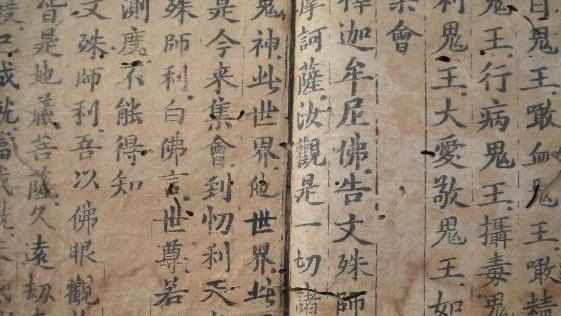 目鬼王噉血鬼王噉精
鬼王行病鬼王攝毒鬼
利鬼王大愛敬鬼王如
會
釋迦牟尼佛告文殊師
摩訶薩汝觀是一切諸
鬼神此世界他世界此
是今來集會到忉利天
殊師利白佛言世尊若
測度不能得知
文殊師利吾以佛眼觀
皆是地藏菩薩久遠劫
度已成就當成就未